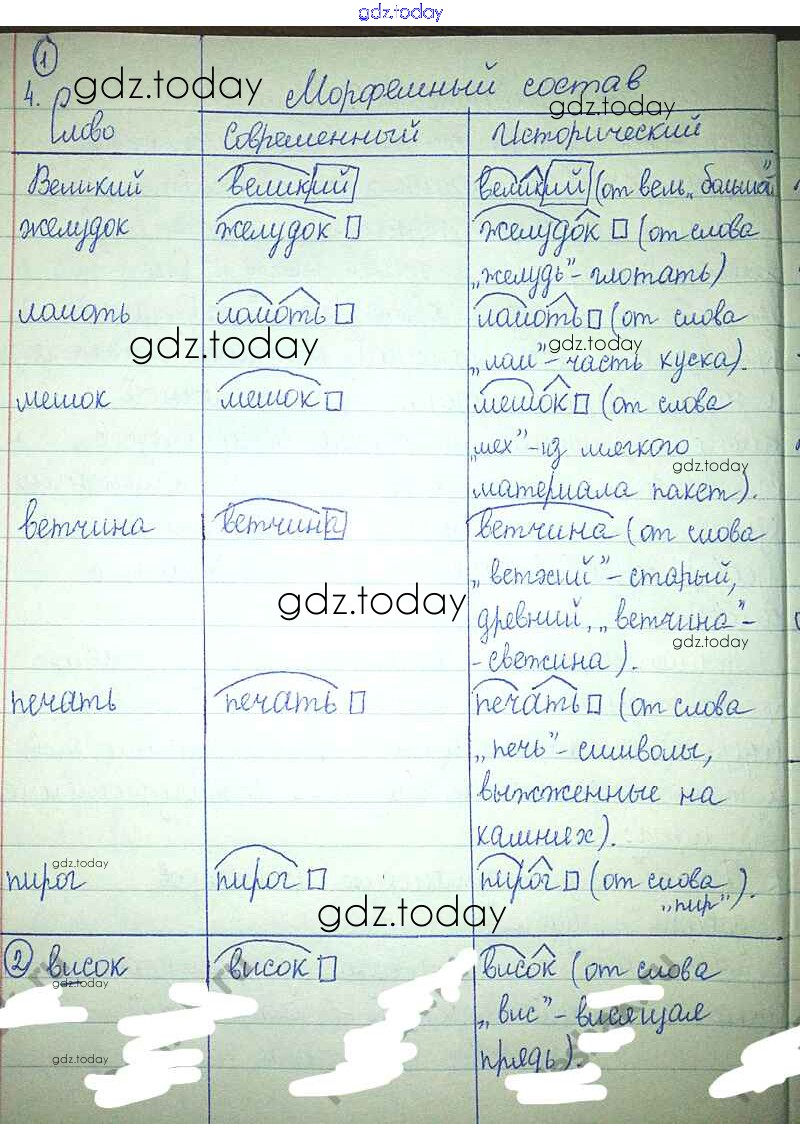 gdz.today
1
4. gdz.today Морфемный состав
gdz.today
Слово Современный Исторический
Великий великий великий (от вель „большой”
желудок желудок желудок (от слова
„желудь”- глотать)
ломоть ломоть ломоть (от слова
gdz.today gdz.today
„лом”- часть куска).
мешок мешок мешок (от слова
„мех”-из мягкого
gdz.today
материала пакет).
ветчина ветчина ветчина (от слова
„ветхий”- старый,
gdz.today
древний, „ветчина”-
gdz.today
-свежина).
печать печать печать (от слова
„печь”- символы,
выжженные на
камнях).
gdz.today
пирог пирог пирог (от слова
„пир”).
gdz.today
2 висок висок висок (от слова
gdz.today
„вис”- висящая
gdz.today
прядь).